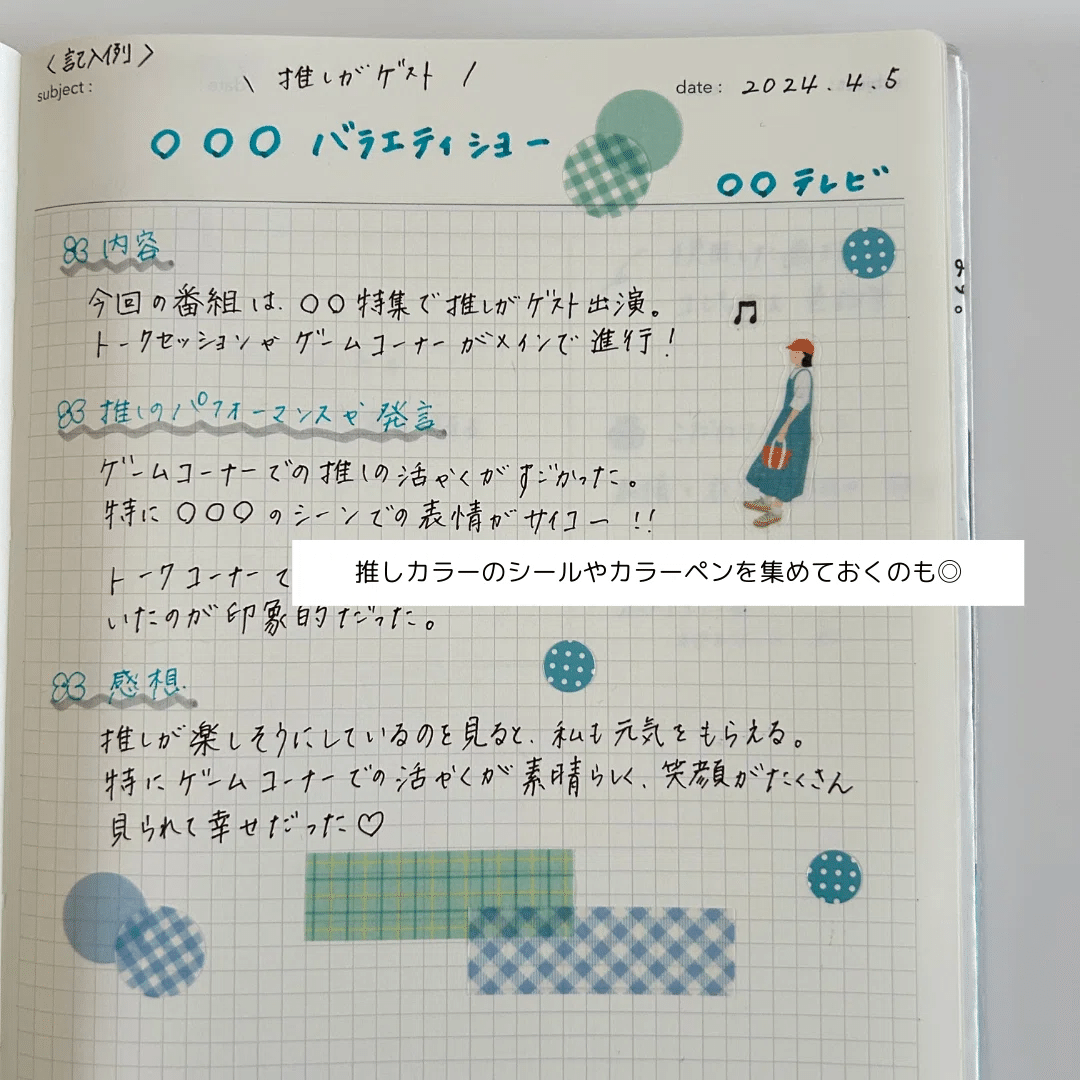 〈記入例〉
subject :
\ 推しがゲスト /
date : 2024.4.5
〇〇〇 バラエティショー
〇〇テレビ
内容
今回の番組は、〇〇特集で推しがゲスト出演。
トークセッションやゲームコーナーがメインで進行！
推しのパフォーマンスや発言
ゲームコーナーでの推しの活やくがすごかった。
特に〇〇〇のシーンでの表情がサイコー!!
トークコーナーで
推しカラーのシールやカラーペンを集めておくのも◎
いたのが印象的だった。
感想
推しが楽しそうにしているのを見ると、私も元気をもらえる。
特にゲームコーナーでの活やくが素晴らしく、笑顔がたくさん
見られて幸せだった♡